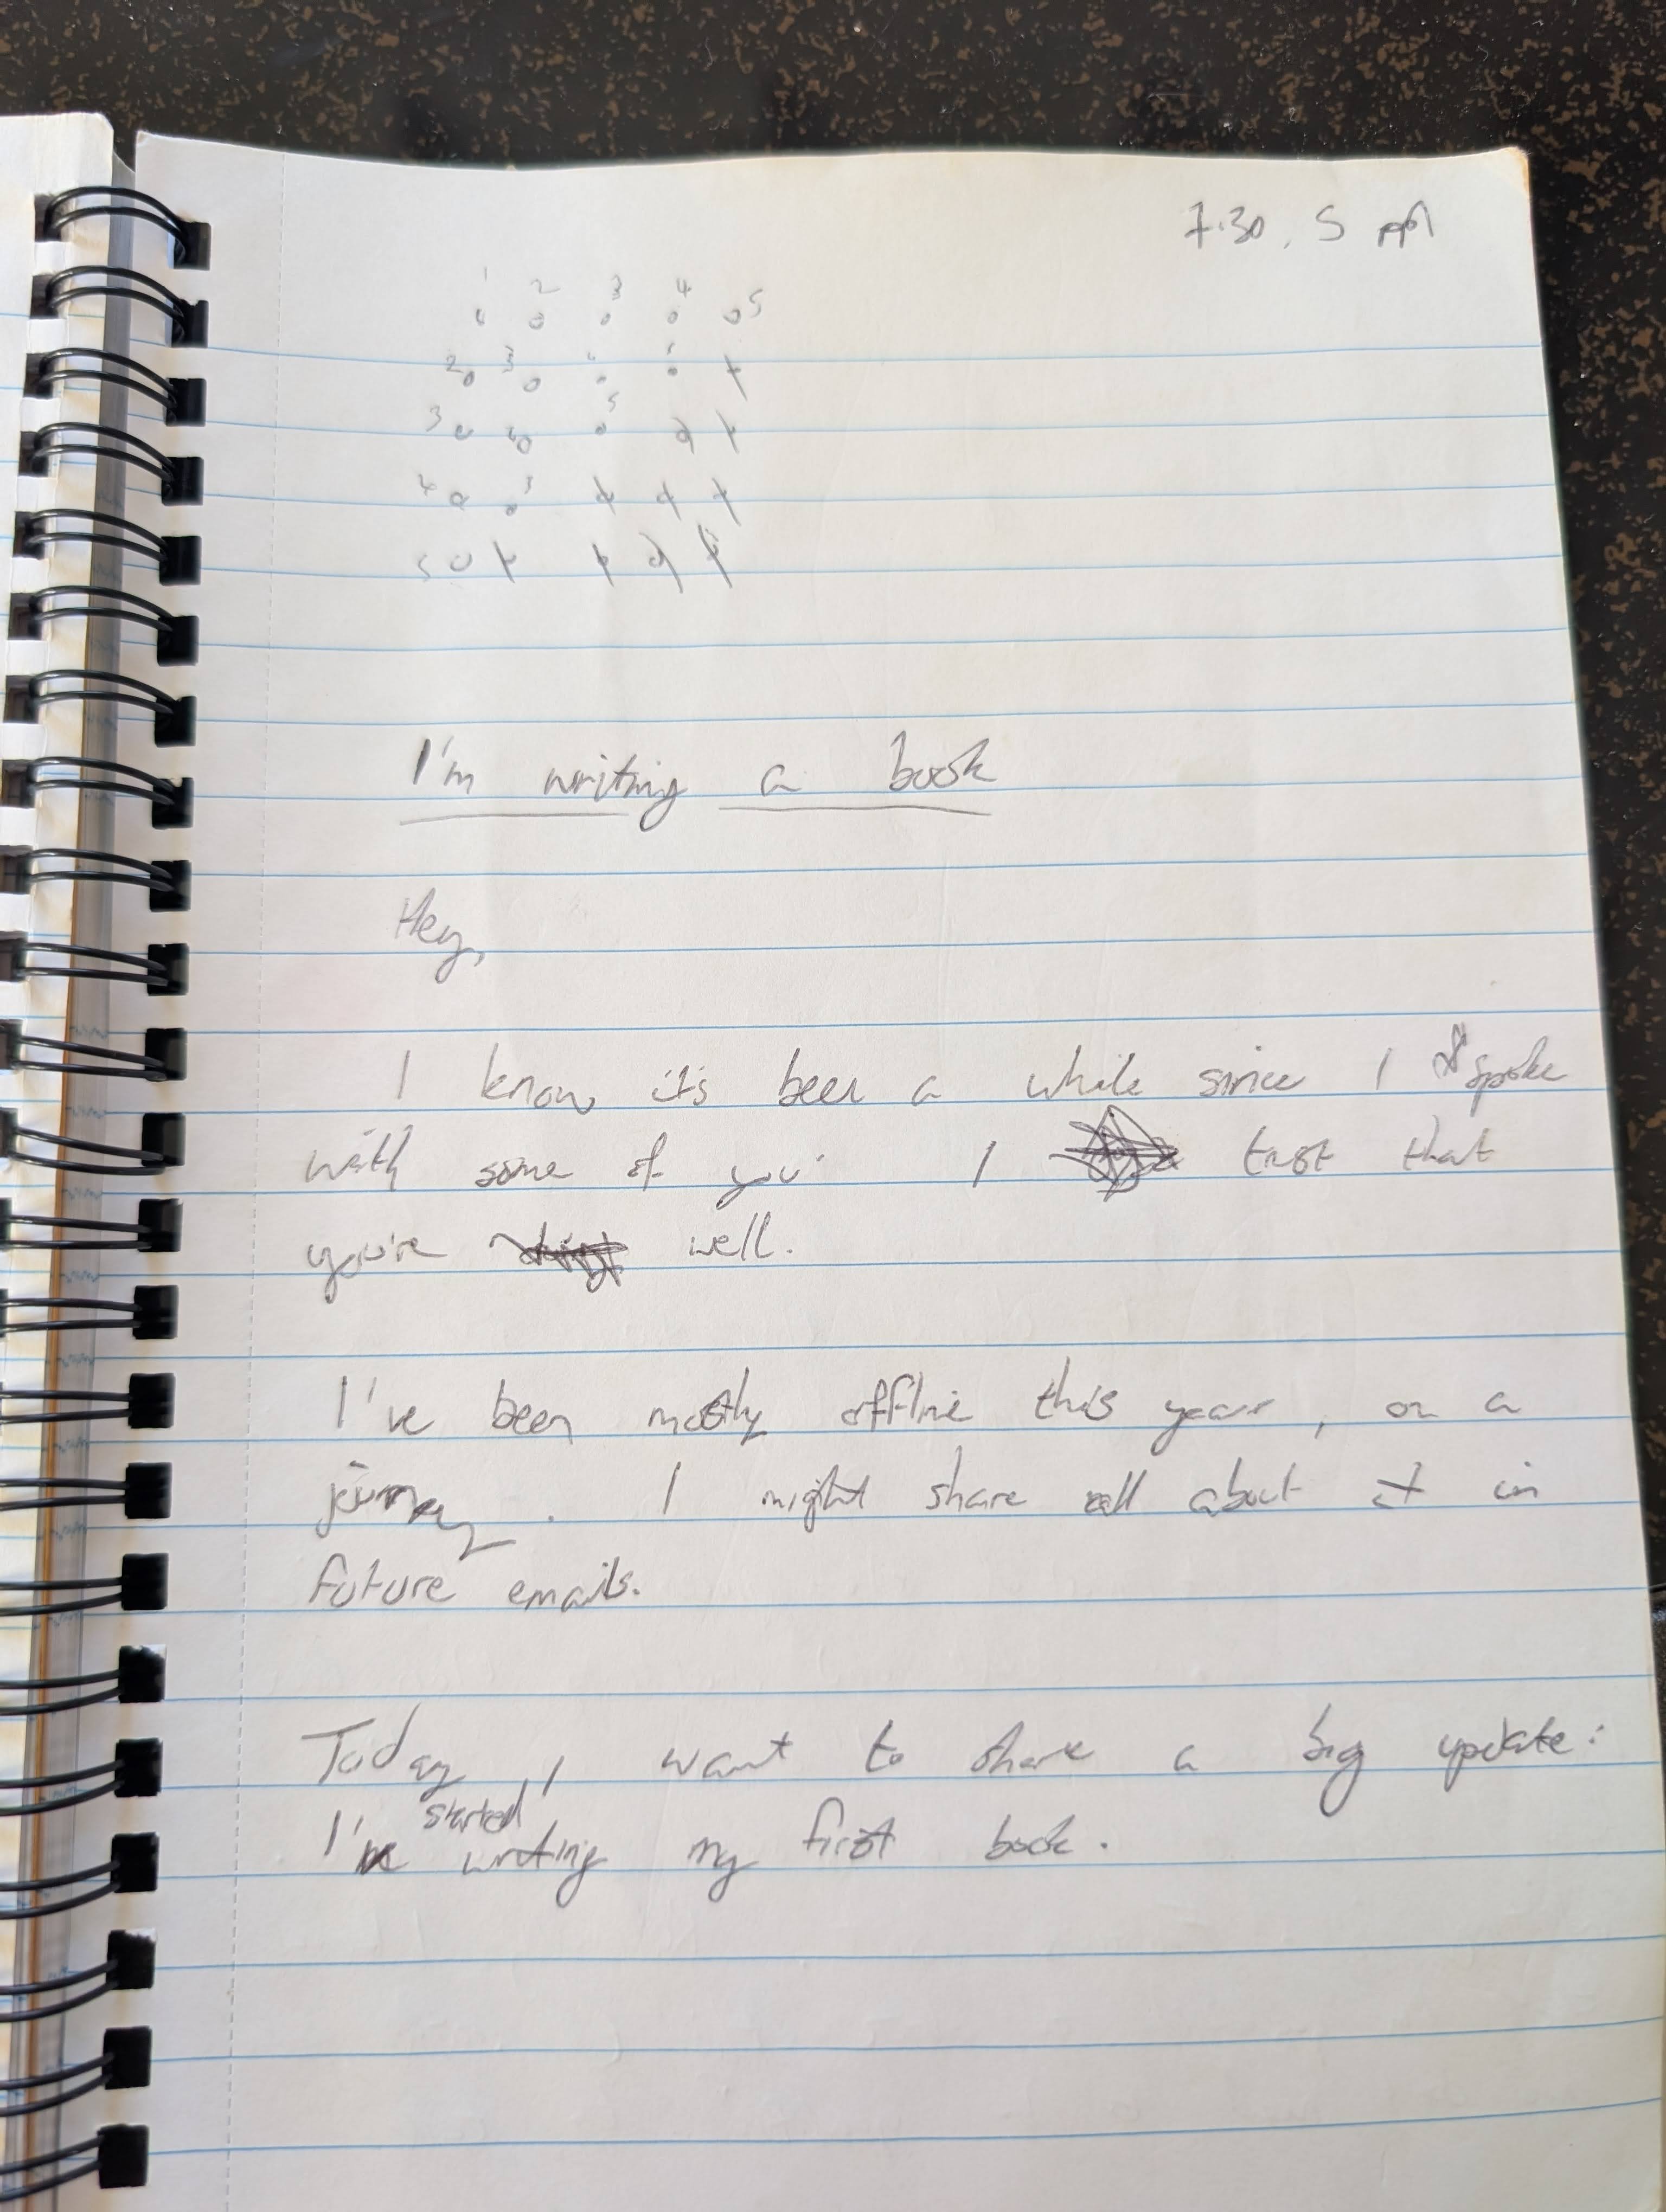 7:30, 5 ppl
1 2 3 4 5
2 3 4 5
3 4 5
4
5
I'm writing a book
Hey,
I know it's been a while since I spoke
with some of you. I trust that
you're well.
I've been mostly offline this year, on a
journey. I might share all about it in
future emails.
Today, I want to share a big update:
started
I've writing my first book.